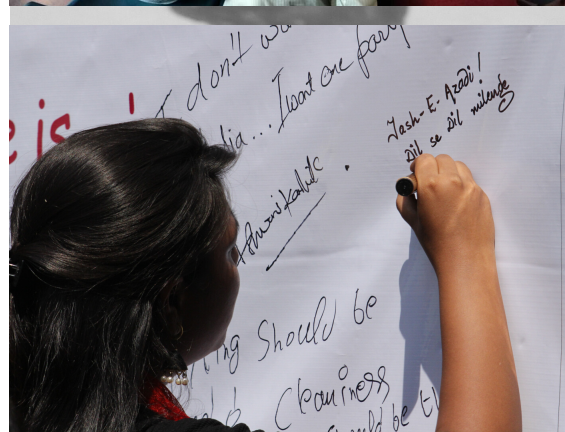 I don't wa
dia... I want one party
is
Jash-E-Azadi!
Dil se Dil milenge
ing Should be
Cleaniness
should be th